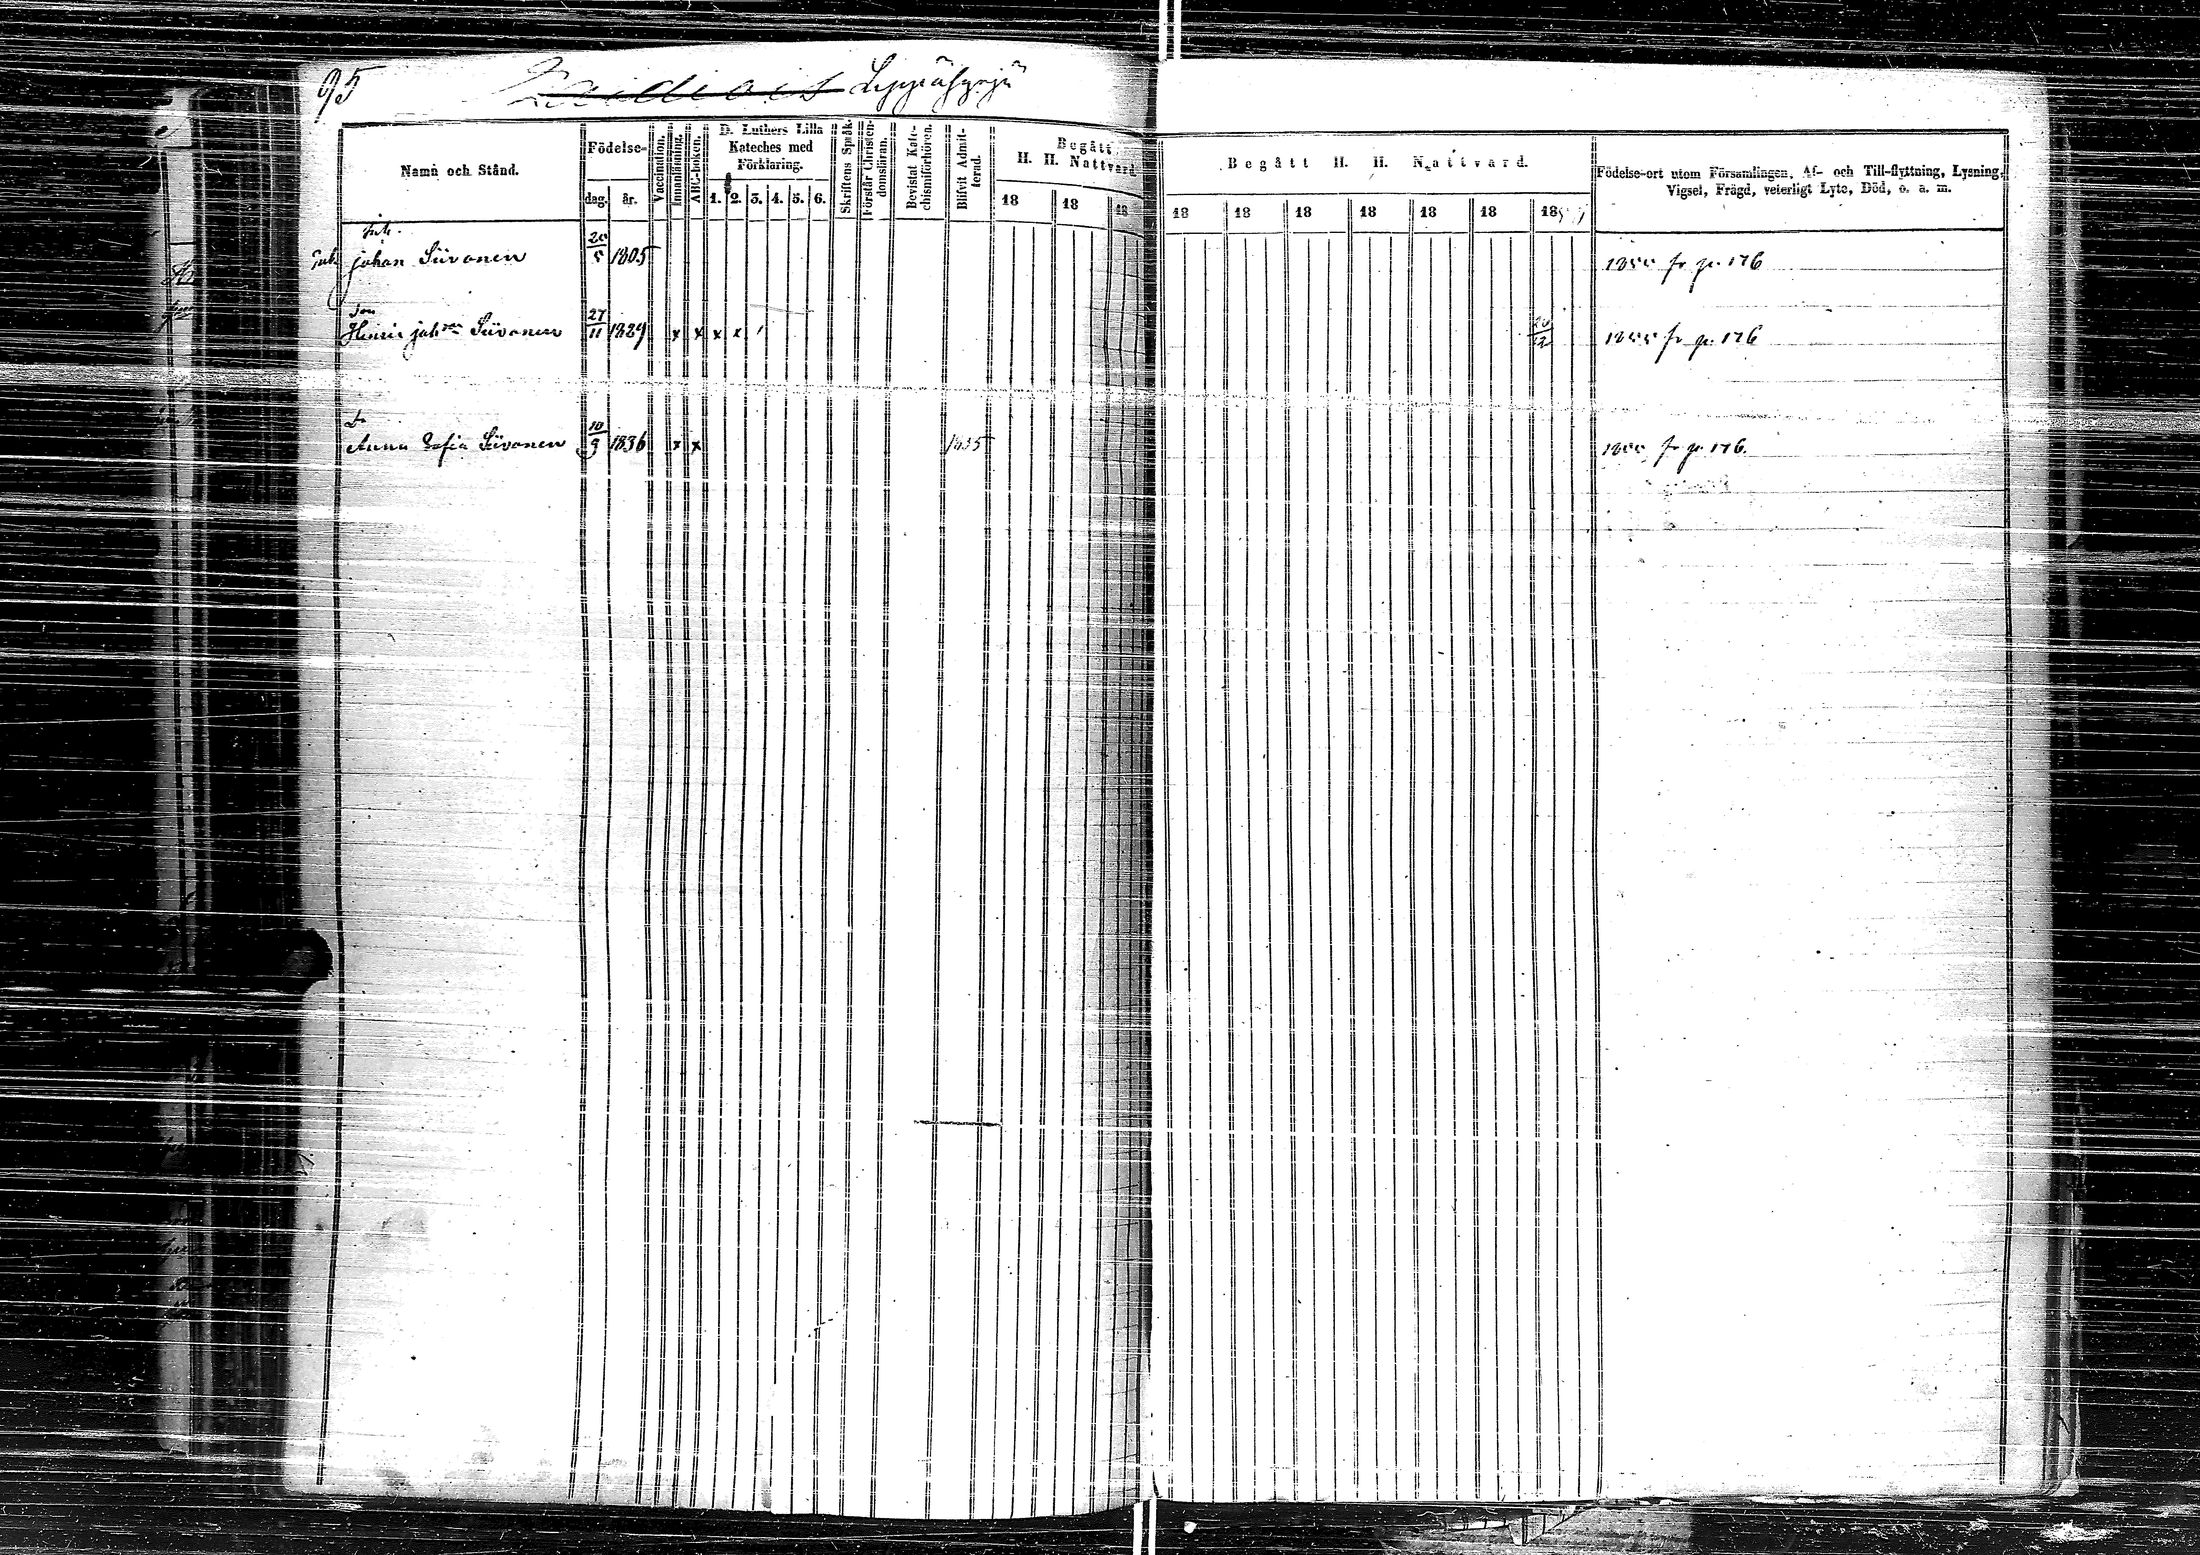 95
Lypräsyrjä
Namn och Stånd.
Födelse-
dag.
år.
Vaccination.
Innanläsning.
ABC-boken.
D. Luthers Lilla
Kateches med
Förklaring.
1. 2. 3. 4. 5. 6.
Skriftens Språk.
Förstår Christen-
domsläran.
Bevistat Kate-
chismiförhören.
Blifvit Admit-
terad.
Begått
H. H. Nattvard
18 18 18
Begått H. H. Nattvard.
18 18 18 18 18 18 18
Födelse-ort utom Församlingen, Af- och Till-flyttning, Lysning,
Vigsel, Frägd, veterligt Lyte, Död, o. a. m.
Inh.
Johan Siivonen 20/5 1805 1855 fr p. 176
Son
Henric Johsson Siivonen 27/11 1829 x x x x 1855 fr p. 176
Dr
Anna Sofia Siivonen 10/9 1836 x x 1855 fr p. 176.